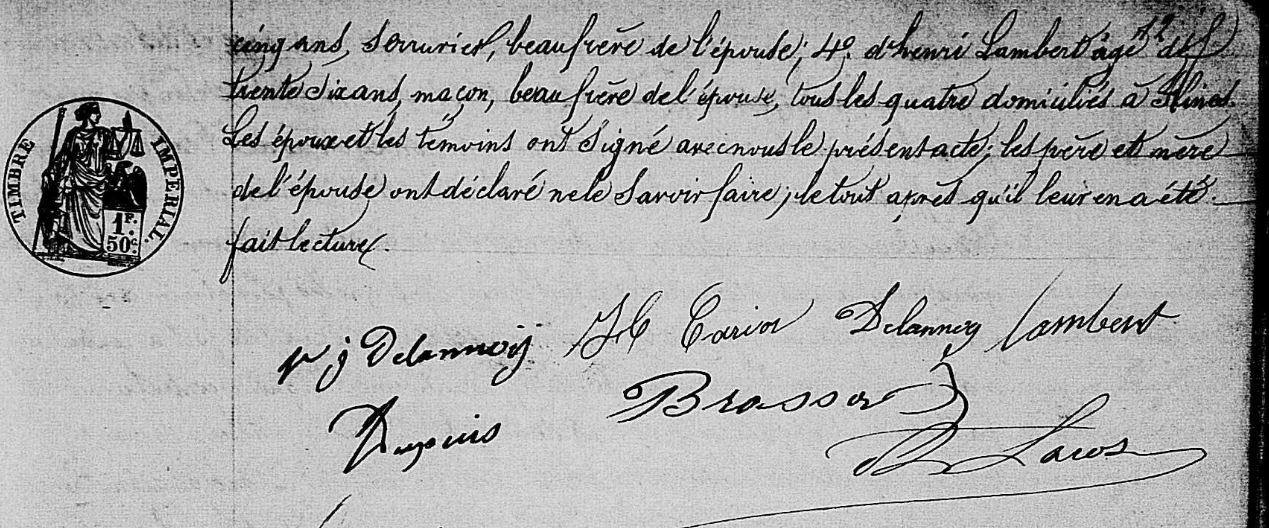 cinq ans, Serrurier, beaufrère de l'épouse; 4º. d'henri Lambert âgé de
trente Six ans, maçon, beaufrère de l'épouse, tous les quatre domiciliés à
Les époux et les témoins ont Signé avec nous le présent acte; les père et mère
de l'épouse ont déclaré ne le Savoir faire; le tout après qu'il leur en a été
fait lecture.
TIMBRE IMPERIAL.
1F.
50c.
j Delannoy Delannoy Lambert
Dupuis Brassart